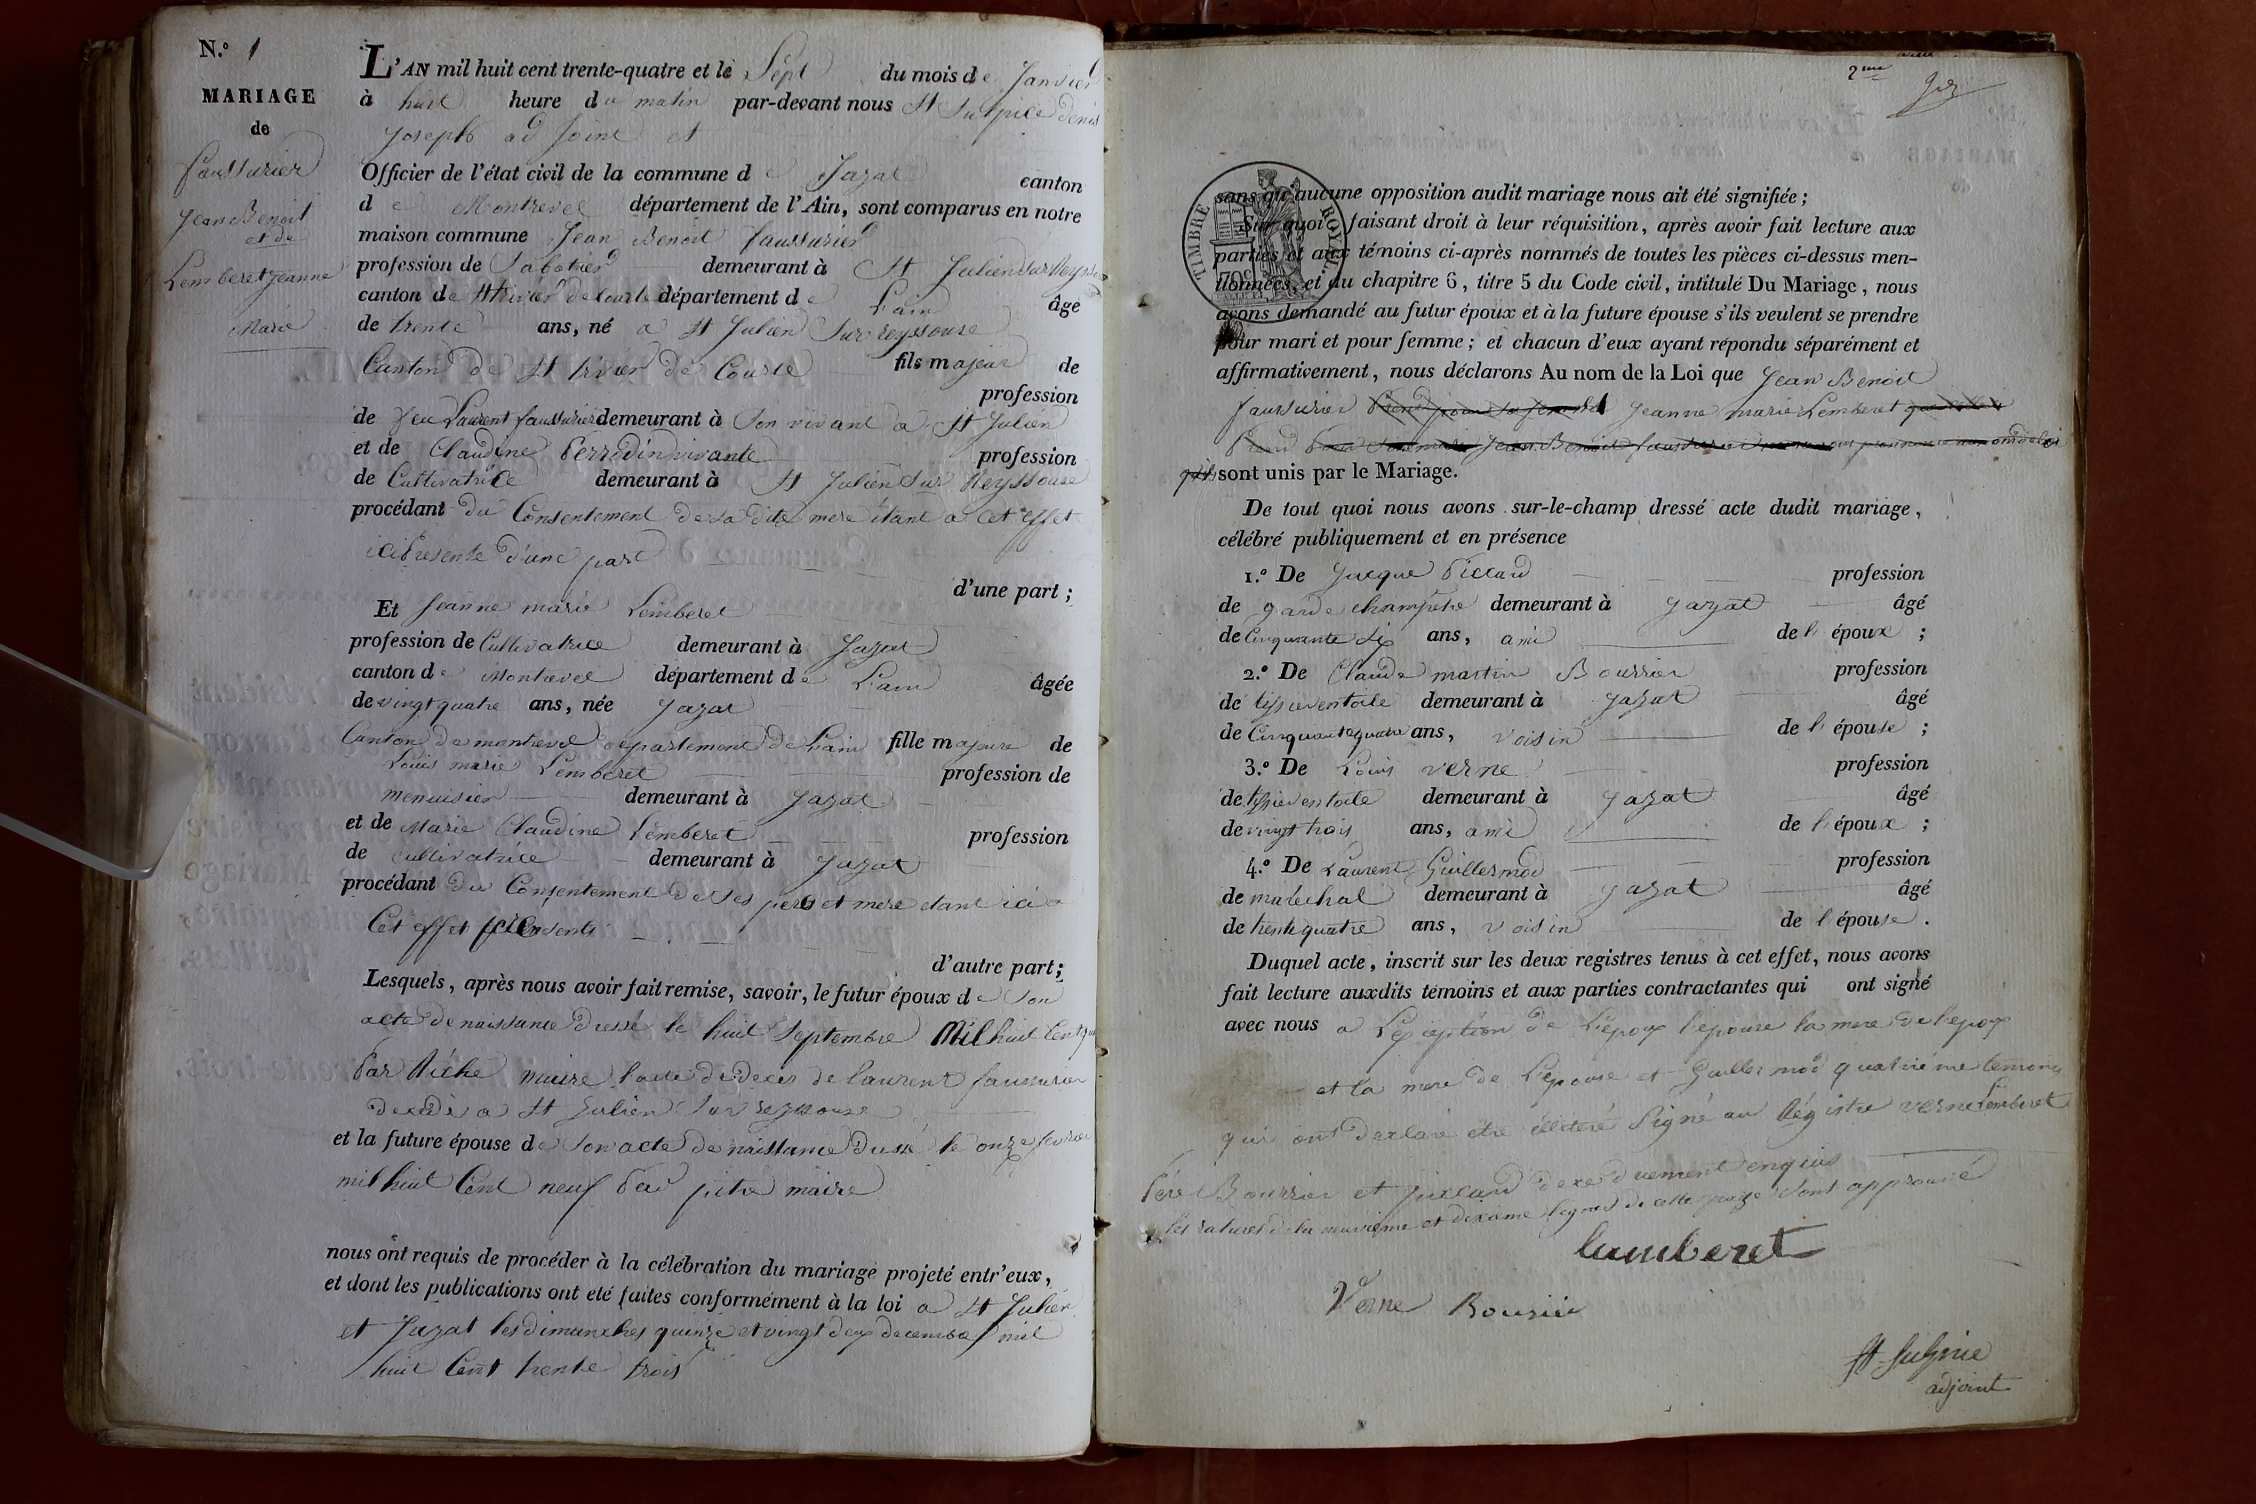 N.º 1
MARIAGE
de
faussurier
Jean Benoit
et de
Lemberet Jeanne
Marie
L'AN mil huit cent trente-quatre et le Sept du mois de Janvier
à huit heure du matin par-devant nous St Sulpice denis
Joseph adjoint et
Officier de l'état civil de la commune de Jayat canton
de Montrevel département de l'Ain, sont comparus en notre
maison commune Jean Benoit faussurier
profession de Sabotier demeurant à St Julien sur Reyssouse
canton de St trivier de Courte département de L'ain âgé
de trente ans, né a St Julien Sur reyssouse
Canton de St trivier de Courte fils majeur de
profession
de feu Laurent faussurier demeurant à Son vivant a St Julien
et de Claudine Perrodin vivante profession
de Cultivatrice demeurant à St Julien Sur Reyssouse
procédant du Consentement de sa dite mere étant a cet effet
ici Presente d'une part
d'une part ;
Et Jeanne marie Lemberet
profession de Cultivatrice demeurant à Jayat
canton de Montrevel département de L'ain âgée
de vingt quatre ans, née Jayat
Canton de montrevel département de L'ain fille majeure de
Louis marie Lemberet profession de
menuisier demeurant à Jayat
et de Marie Claudine Lemberet profession
de cultivatrice demeurant à Jayat
procédant du Consentement de Ses pere et mere etant ici a
Cet effet presents
d'autre part ;
Lesquels, après nous avoir fait remise, savoir, le futur époux de Son
acte de naissance dressé le huit Septembre Mil huit Cent
Par maire l'acte de deces de laurent faussurier
decedé a St Julien Sur reyssouse
et la future épouse de Son acte de naissance dressé le onze fevrier
mil huit Cent neuf Par maire
nous ont requis de procéder à la célébration du mariage projeté entr'eux,
et dont les publications ont été faites conformément à la loi a St Julien
et Jayat les dimanches quinze et vingt deux decembre mil
huit Cent trente trois
2me
TIMBRE ROYAL
70c
sans qu'aucune opposition audit mariage nous ait été signifiée ;
Sur quoi faisant droit à leur réquisition, après avoir fait lecture aux
parties et aux témoins ci-après nommés de toutes les pièces ci-dessus men-
tionnées, et du chapitre 6, titre 5 du Code civil, intitulé Du Mariage, nous
avons demandé au futur époux et à la future épouse s'ils veulent se prendre
pour mari et pour femme ; et chacun d'eux ayant répondu séparément et
affirmativement, nous déclarons Au nom de la Loi que Jean Benoit
faussurier Prend pour sa femme et Jeanne marie Lemberet que
Prend Pour Son mari Jean Benoit faussurier
sont unis par le Mariage.
De tout quoi nous avons sur-le-champ dressé acte dudit mariage,
célébré publiquement et en présence
1.º De Jacque Piccard profession
de garde champetre demeurant à Jayat âgé
de Cinquante Six ans, ami de l' époux ;
2.º De Claude martin Bourrier profession
de tissier en toile demeurant à Jayat âgé
de Cinquante quatre ans, voisin de l' épouse ;
3.º De Louis verne profession
de tissier en toile demeurant à Jayat âgé
de vingt trois ans, ami de l' époux ;
4.º De Laurent Guillermod profession
de maréchal demeurant à Jayat âgé
de trente quatre ans, voisin de l' épouse .
Duquel acte, inscrit sur les deux registres tenus à cet effet, nous avons
fait lecture auxdits témoins et aux parties contractantes qui ont signé
avec nous a L'exception de L'époux l'epouse la mere de l'epoux
et la mere de L'epouse et Guillermod quatriéme temoins
qui ont declaré etre illiteré Signé au Régistre verne Lemberet
Pere Bourrier et duement enquis
les ratures de la neuvieme et dixieme lignes de cette page Sont approuvé
lamberet
Verne Bourier
St Sulpice
adjoint